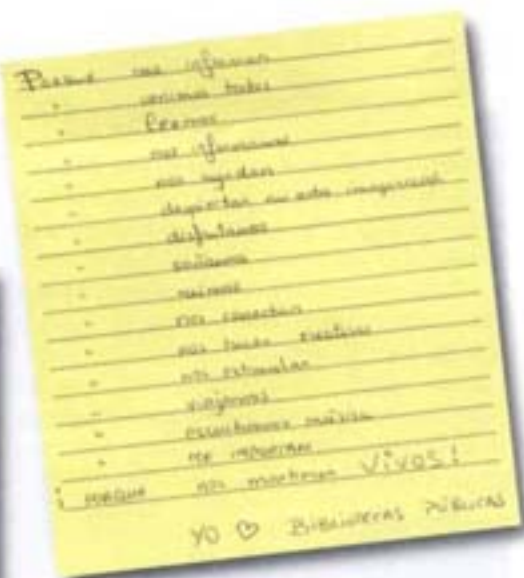 Porque nos informan
" venimos todos
" leemos
" nos informamos
" nos ayudan
" despiertan nuestra imaginación
" disfrutamos
" soñamos
"
" nos conectan
" nos hacen creativos
" nos estimulan
" viajamos
" escuchamos música
" ME
¡ PORQUE nos mantienen VIVOS!
YO ♡ BIBLIOTECAS PÚBLICAS